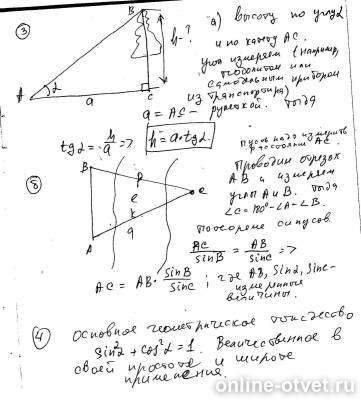 ③
B
h - ?
A
α
a
C
а) высоту по углу α
и по катету AC.
угол измеряем (например,
теодолитом или
самодельным прибором
из транспортира)
a = AC - рулеткой. тогда
tg α = h/a => h = a·tg α.
⑧
B
A
C
р
е
к
а
пусть надо измерить
расстояние AC.
Проводим отрезок
AB и измеряем
углы A и B. тогда
∠C = 180° - ∠A - ∠B.
По теореме синусов
AC/sin B = AB/sin C =>
AC = AB · sin B/sin C ; где AB, sin α, sin C -
измеренные
величины.
④ Основное геометрическое тождество
sin²α + cos²α = 1. Величественное в
своей простоте и широте
применения.
online-otvet.ru